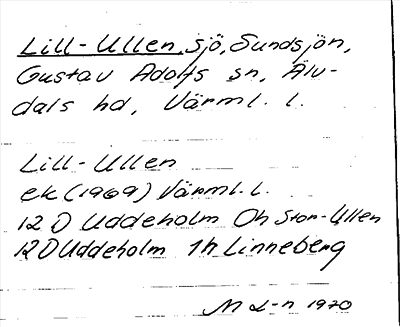 Lill-Ullen, sjö, Sundsjön,
Gustav Adolfs sn, Älv-
dals hd, Värml. l.
Lill-Ullen
ek (1969) Värml. l.
12 D Uddeholm 0h Stor-Ullen
12 D Uddeholm 1h Linneberg
M L-n 1970